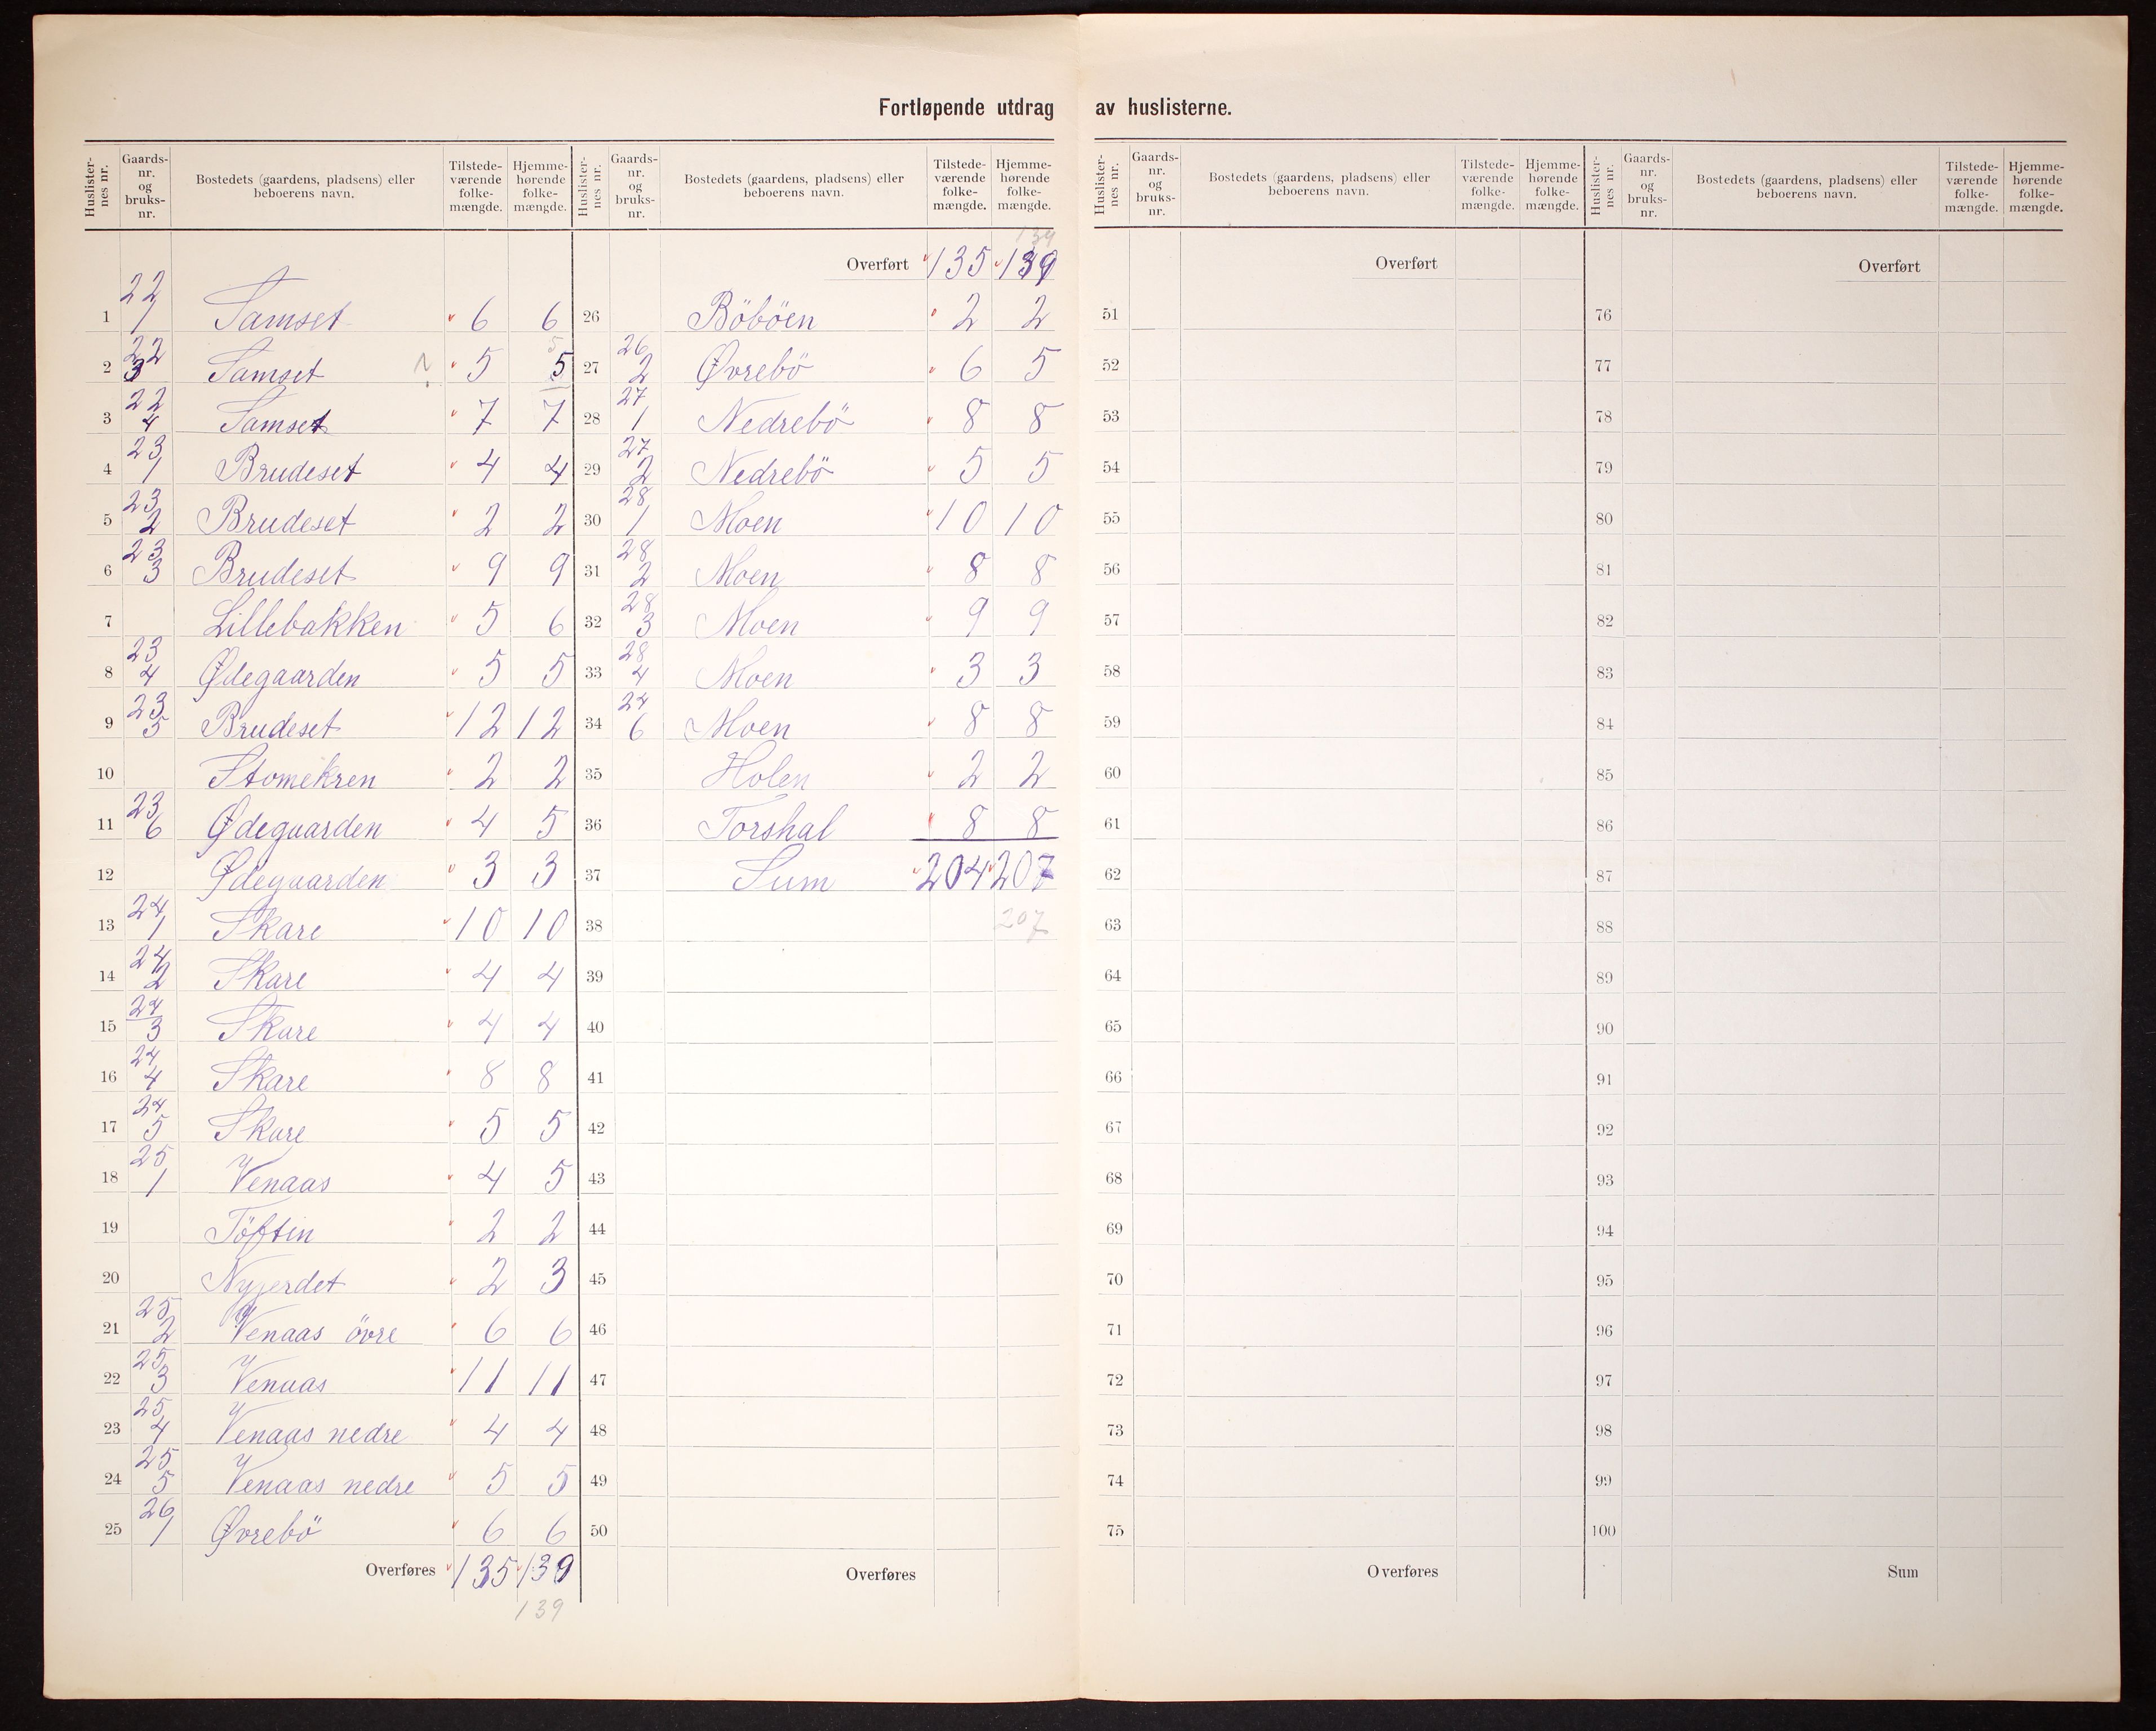 Fortløpende utdrag av huslisterne.
Huslisternes nr. | Gaards-nr. og bruks-nr. | Bostedets (gaardens, pladsens) eller beboerens navn. | Tilstede-værende folke-mængde. | Hjemme-hørende folke-mængde.
1 22/1 Samset 6 6
2 22/3 Samset 5 5 5
3 22/4 Samset 7 7
4 23/1 Brudeset 4 4
5 23/2 Brudeset 2 2
6 23/3 Brudeset 9 9
7 Lillebakken 5 6
8 23/4 Ødegaarden 5 5
9 23/5 Brudeset 12 12
10 Stomekren 2 2
11 23/6 Ødegaarden 4 5
12 Ødegaarden 3 3
13 24/1 Skare 10 10
14 24/2 Skare 4 4
15 24/3 Skare 4 4
16 24/4 Skare 8 8
17 24/5 Skare 5 5
18 25/1 Venaas 4 5
19 Töftin 2 2
20 Nyjerdet 2 3
21 25/2 Venaas övre 6 6
22 25/3 Venaas 11 11
23 25/4 Venaas nedre 4 4
24 25/5 Venaas nedre 5 5
25 26/1 Øvrebö 6 6
Overføres 135 139
139
Huslisternes nr. | Gaards-nr. og bruks-nr. | Bostedets (gaardens, pladsens) eller beboerens navn. | Tilstede-værende folke-mængde. | Hjemme-hørende folke-mængde.
139
Overført 135 139
26 Böböen 2 2
27 26/2 Øvrebö 6 5
28 27/1 Nedrebö 8 8
29 27/2 Nedrebö 5 5
30 28/1 Moen 10 10
31 28/2 Moen 8 8
32 28/3 Moen 9 9
33 28/4 Moen 3 3
34 24/6 Moen 8 8
35 Holen 2 2
36 Torshal 8 8
37 Sum 204 207
38 207
39
40
41
42
43
44
45
46
47
48
49
50
Overføres
Huslisternes nr. | Gaards-nr. og bruks-nr. | Bostedets (gaardens, pladsens) eller beboerens navn. | Tilstede-værende folke-mængde. | Hjemme-hørende folke-mængde.
Overført
51
52
53
54
55
56
57
58
59
60
61
62
63
64
65
66
67
68
69
70
71
72
73
74
75
Overføres
Huslisternes nr. | Gaards-nr. og bruks-nr. | Bostedets (gaardens, pladsens) eller beboerens navn. | Tilstede-værende folke-mængde. | Hjemme-hørende folke-mængde.
Overført
76
77
78
79
80
81
82
83
84
85
86
87
88
89
90
91
92
93
94
95
96
97
98
99
100
Sum